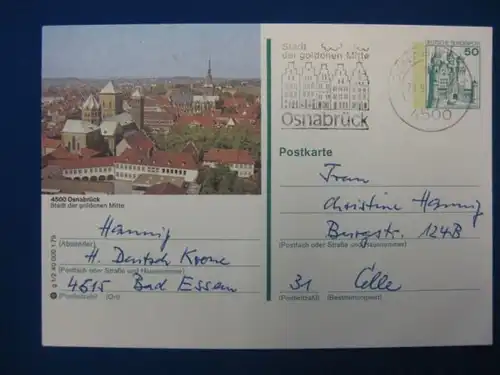 Stadt
der goldenen Mitte
Osnabrück
50
4500
4500 Osnabrück
Stadt der goldenen Mitte
Hannig
(Absender)
H. Deutsch Krone
(Postfach oder Straße und Hausnummer)
4515 Bad Essen
(Postleitzahl) (Ort)
Postkarte
Frau
Christine Hannig
Burgstr. 124B
(Postfach oder Straße und Hausnummer)
31 Celle
(Postleitzahl) (Bestimmungsort)